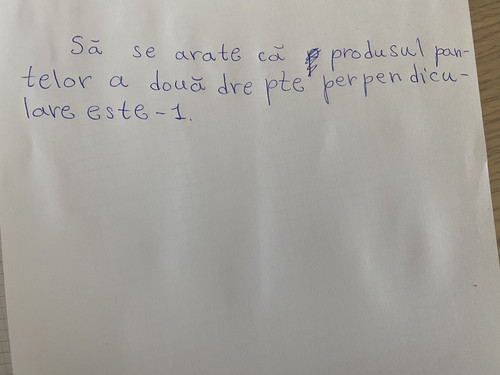 Să se arate că produsul pan-
telor a două drepte perpendicu-
lare este -1.